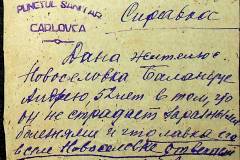 PUNCTUL SANITAR
CARLOVCA
Справка
Дана жителю с.
Новоселовка Баланчук
Андрею, 52 лет в том, что
он не страдает заразными
болезнями и что лавка его
в селе Новоселовке отвечает